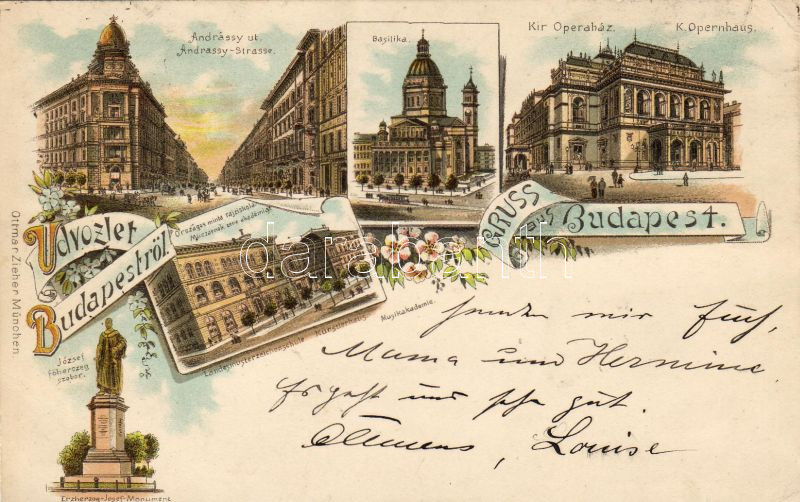 Andrássy ut.
Andrassy-Strasse.
Basilika.
Kir Operaház. K. Opernhaus.
Üdvözlet
Budapestről
Országos minta rajziskola
Műcsarnok zene akademia
GRUSS
aus
Budapest.
Landesmusterzeichenschule Künstlerhaus. Musikakademie.
József
főherczeg
szobor.
Erzherzog-Josef-Monument
Ottmar Zieher München
darabanth
senden mir
Mama und Hermine
Es geht uns sehr gut.
Clemens, Louise